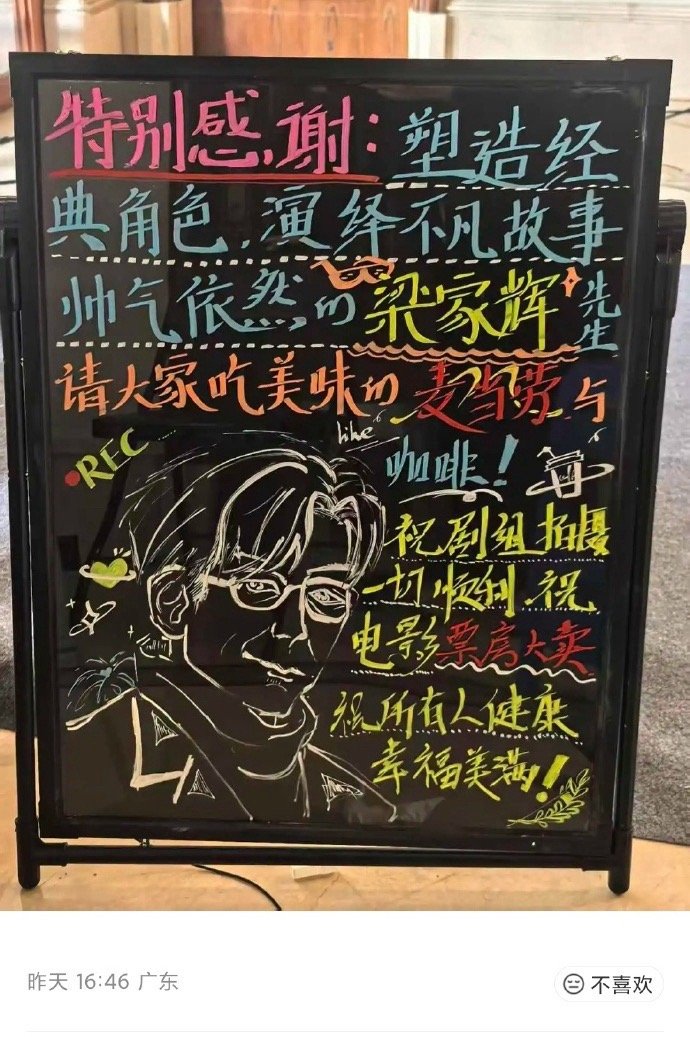 特别感谢：塑造经
典角色，演绎不凡故事
帅气依然的梁家辉先生
请大家吃美味的麦当劳与
like
咖啡！
REC
祝剧组拍摄
一切顺利，祝
电影票房大卖
祝所有人健康
幸福美满！！
昨天 16:46 广东
不喜欢